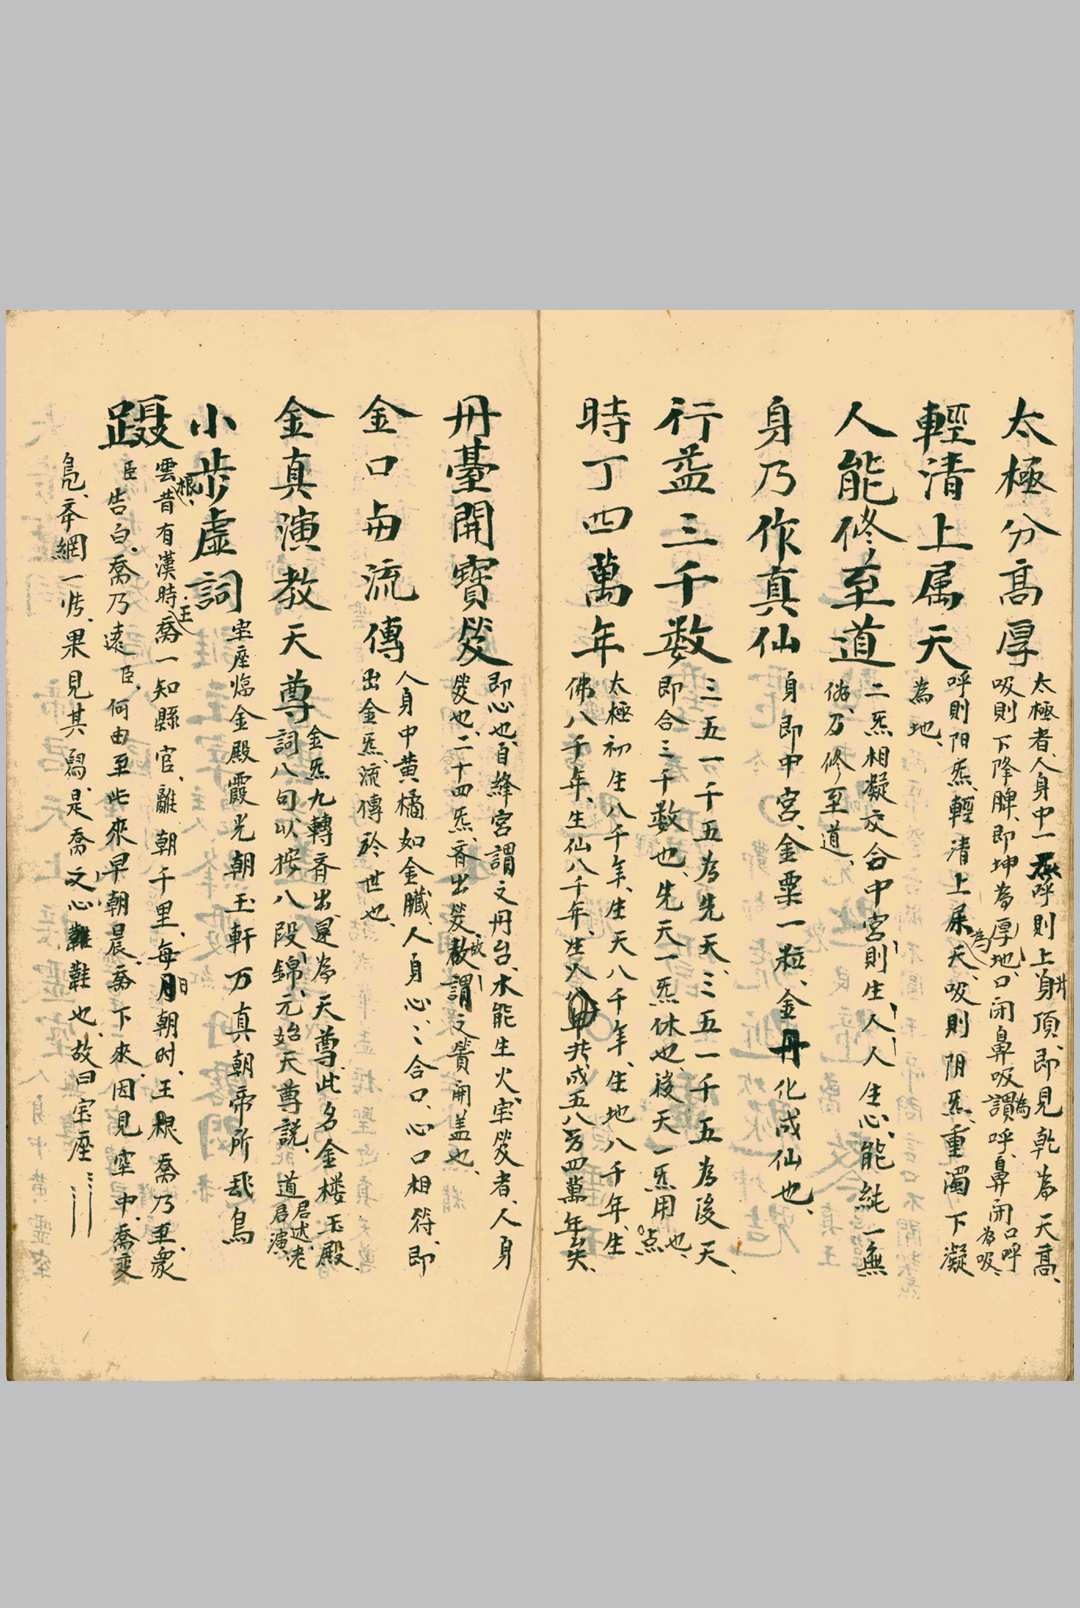 太極分高厚
太極者、人身中一炁、呼則上身頂、即見乾為天高、
吸則下降脾、即坤為厚地、口閉鼻吸謂為呼、鼻閉口呼為吸、
輕清上属天
呼則阳炁、輕清上属天、吸則阴炁、重濁下凝
為地、
人能修至道
二炁相凝交合中宮、則生人、人生心、能純一無
偽、乃修至道、
身乃作真仙
身即中宮、金粟一粒、金丹化成仙也、
行益三千数
三五一千五為先天、三五一千五為後天、
即合三千数也、先天一炁休也、後天一炁用也、
時丁四萬年
太極初生八千年、生天八千年、生地八千年、生
佛八千年、生仙八千年、生人八千共成五八四萬年矣、
丹臺開寶笈
即心也、自絳宮謂之丹台、水能生火、宝笈者、人身
笈也、二十四炁、斉出笈、故謂之寶開盖也、
金口毎流傳
人身中黄橘如金臓、人身心、心合口、心口相符、即
出金炁、流傳於世也、
金真演教天尊
金炁九轉斉出、是為天尊、此名金楼玉殿、
詞八句以按八段錦、元始天尊説、道君述、老君演、
小步虚詞
宝座臨金殿霞光朝玉軒万真朝帝所飛舄
躡
雲昔有漢時、王喬一知縣官、離朝千里、每月日朝时、王根喬乃亜衆
臣告白、喬乃遠臣、何由至此來早朝晨、喬下來、因見空中、喬変
凫、奉網一㨿、果見其舄、是喬之鞋也、故曰宝座